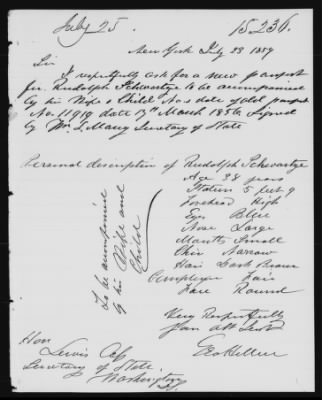 July 25. 15.236.
New York July 23 1859
Sir
I respectfully ask for a new passport
for Rudolph Schwartze to be accompanied
by his Wife & Child No & date of old passport
No. 11919 date 17th March 1856 signed
by Wm L Marcy Secretary of State
Personal description of Rudolph Schwartze
Age 38 years
Stature 5 feet 9
Forehead High
Eyes Blue
Nose Large
Mouth Small
Chin Narrow
Hair Dark Brown
Complexion Fair
Face Round
To be accompanied
by his Wife and
Child
Very Respectfully
Your Obt Servt
Geo Hillner
Hon
Lewis Cass
Secretary of State
Washington